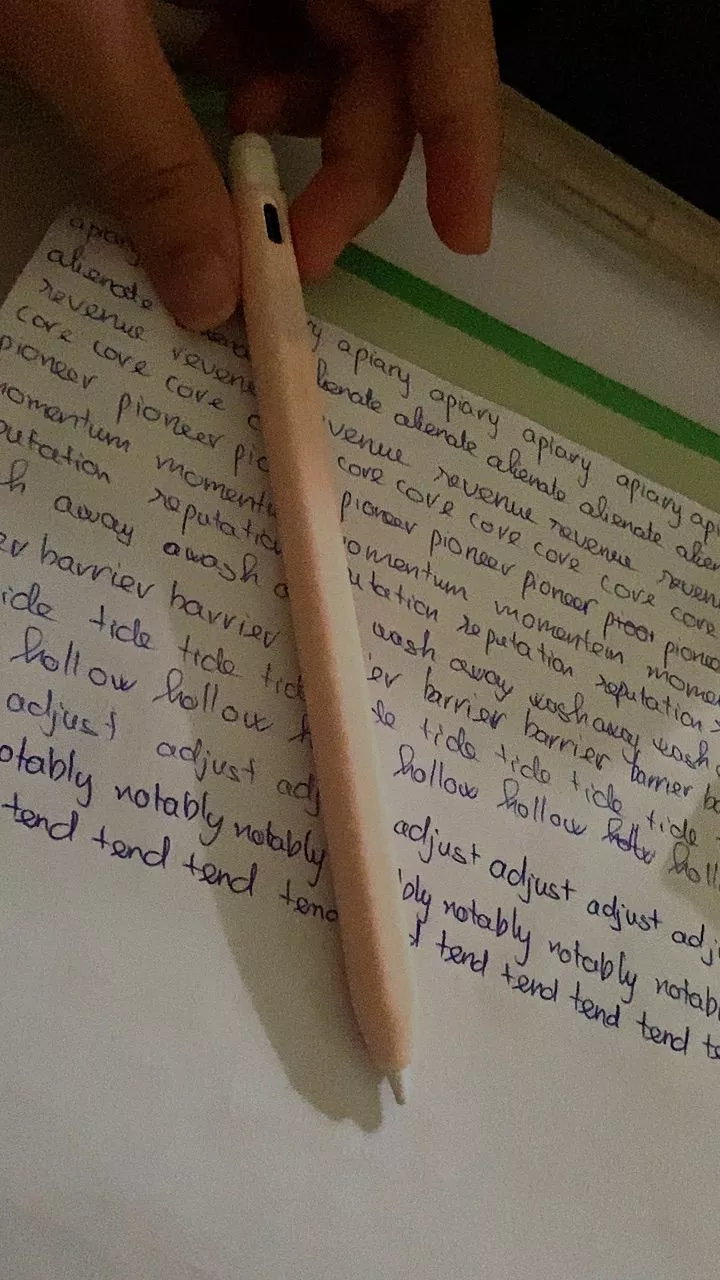 apiary apiary apiary apiary apiary
alienate alienate alienate alienate alienate
revenue revenue revenue revenue revenue
core core core core core core core core core
pioneer pioneer pioneer pioneer pioneer
momentum momentum momentem
reputation reputation reputation
away awash wash away wash away wash
barrier barrier barrier barrier barrier
tide tide tide tide tide tide tide
hollow hollow hollow hollow
adjust adjust adjust adjust adjust
notably notably notably notably
tend tend tend tend tend tend tend tend